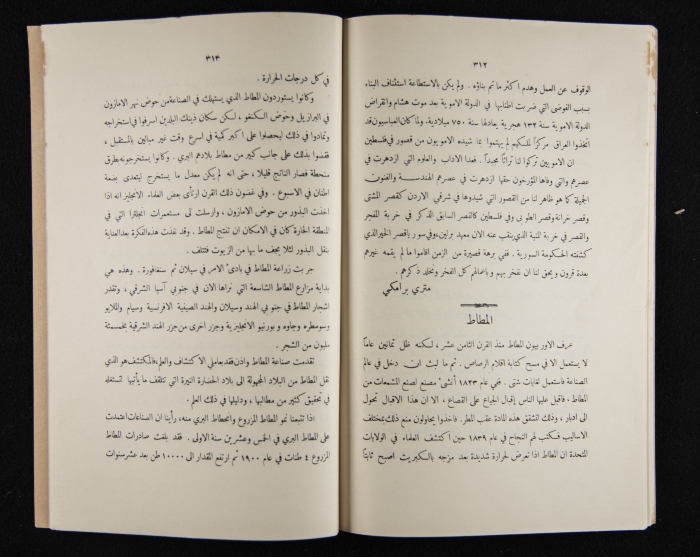 ٣١٢
الوقوف عن العمل وهدم اكثر ما تم بناؤه . ولم يكن بالاستطاعة استئناف البناء
بسبب الفوضى التي ضربت اطنابها في الدولة الاموية بعد موت هشام وانقراض
الدولة الاموية سنة ١٣٢ هجرية يعادلها سنة ٧٥٠ ميلادية. ولما كان العباسيون قد
اتخذوا العراق مركزاً لملكهم لم يهتموا بما شيده الامويون من قصور في فلسطين
ان الامويين تركوا لنا تراثاً مجيداً. فعدا الاداب والعلوم التي ازدهرت في
عصرهم والتي وفاها المؤرخون حقها ازدهرت في عصرهم الهندسة والفنون
الجميلة كما هو ظاهر لنا من القصور التي شيدوها في شرقي الاردن كقصر المشتى
وقصر خرانة وقصر الطوبى وفي فلسطين كالقصر السابق الذكر في خربة المفجر
والقصر في خربة المنية الذي ينقب عنه الان معهد برلين، وفي سوريا قصر الحير الذي
كشفته الحكومة السورية . ففي برهة قصيرة من الزمن اقاموا ما لم يقمه غيرهم
بعدة قرون ويحق لنا ان نفخر بهم وباعمالهم كل الفخر ونخلد ذكرهم .
متري برامكي
المطاط
عرف الاوربيون المطاط منذ القرن الثامن عشر، لكنه ظل ثمانين عاماً
لا يستعمل الا في مسح كتابة اقلام الرصاص . ثم ما لبث ان دخل في عالم
الصناعة فاستعمل لغايات شتى . ففي عام ١٨٢٣ أنشئ مصنع لصنع المشمعات من
المطاط، فاقبل عليها الناس إقبال الجياع على القصاع ، الا ان هذا الاقبال تحول
الى ادبار، وذلك لتشقق هذه المادة عقب المطر. فاخذوا يحاولون منع ذلك بمختلف
الاساليب فكتب لهم النجاح في عام ١٨٣٩ حين اكتشف العلماء في الولايات
المتحدة ان المطاط اذا تعرض لحرارة شديدة بعد مزجه بالكبريت اصبح ثابتاً
٣١٣
في كل درجات الحرارة .
وكانوا يستوردون المطاط الذي يستهلك في الصناعة من حوض نهر الامازون
في البرازيل وحوض الكنغو ، لكن سكان ذينك البلدين اسرفوا في استخراجه
وتمادوا في ذلك ليحصلوا على اكبر كمية في اسرع وقت غير مبالين بالمستقبل ،
فقدوا بذلك على جانب كبير من مطاط بلادهم البري . وكانوا يستخرجونه بطرق
منحطة فصار الناتج قليلا ، حتى انه لم يكن معدل ما يستخرج ليتعدى بضعة
اطنان في الاسبوع . وفي غضون ذلك القرن ارتأى بعض العلماء الانجليز انه اذا
اخذت البذور من حوض الامازون ، وارسلت لى مستعمرات انجلترا التي في
المنطقة الحارة كان في الامكان ان تنتج المطاط . وقد نفذت هذه الفكرة بعد العناية
بنقل البذور لئلا يجف ما بها من الزيوت فتتلف .
جربت زراعة المطاط في بادئ الامر في سيلان ثم سنغافورة . وهذه هي
بداية مزارع المطاط الشاسعة التي نراها الان في جنوبي آسيا الشرقي ، وتقدر
اشجار المطاط في جنوبي الهند وسيلان والهند الصينية الافرنسية وسيام والملايو
وسومطره وجاوه و بورنيو الانجليزية وجزر اخرى من جزر الهند الشرقية بخمسمئة
مليون من الشجر .
تقدمت صناعة المطاط واذن فقد عاملي الاكتشاف والعلم، فالمكتشف هو الذي
نقل المطاط من البلاد المجهولة الى بلاد الحضارة النيرة التي تتلقف ما يأتيها لتستغله
في تحقيق كثير من مطالبها ، ودليلها في ذلك العلم .
اذا تتبعنا نمو المطاط المزروع وانحطاط البري منه، رأينا ان الصناعات اعتمدت
على المطاط البري في الخمس وعشرين سنة الاولى . فقد بلغت صادرات المطاط
المزروع ٤ طنات في عام ١٩٠٠ ثم ارتفع المقدار الى ١٠٠٠٠ طن بعد عشر سنوات